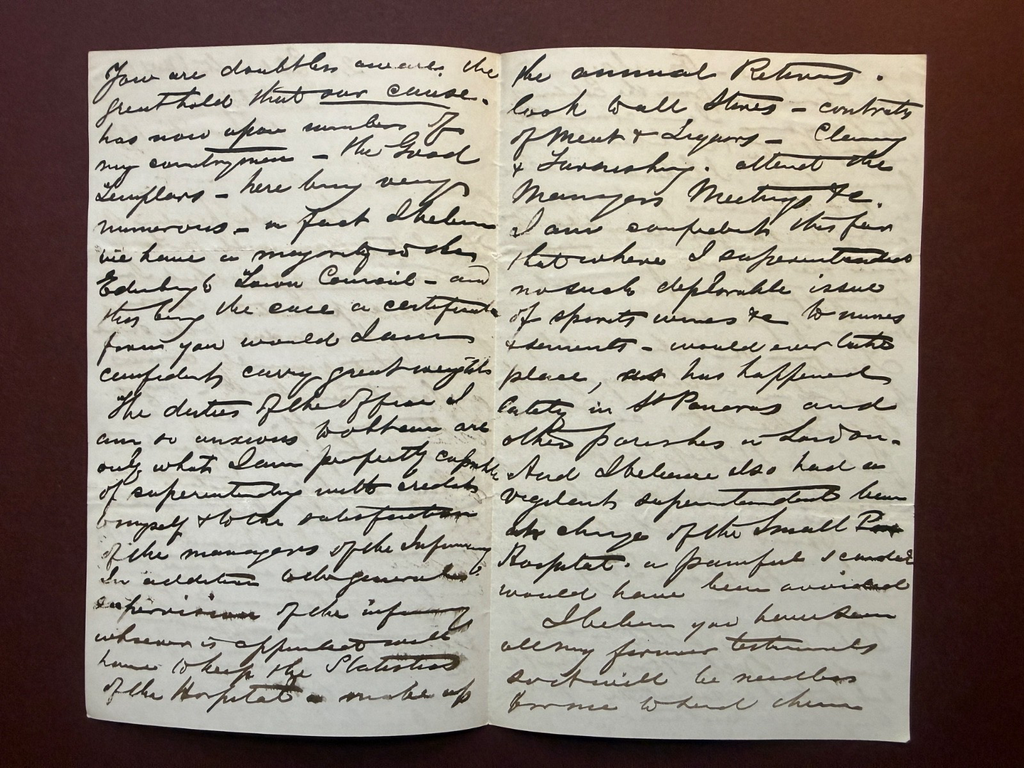 You are doubtless aware, the
great hold that our cause.
has now upon numbers of
my countrymen – the Good
Templars – here being very
numerous – in fact I believe
we have a majority in the
Edinbg Town Council – and
this being the case a certificate
from you would I am
confident carry great weight
The duties of the office I
am so anxious to obtain are
only what I am perfectly capable
of superintending with credit
to myself & to the satisfaction
of the managers of the Infirmary
In addition to the general
supervision of the infirmary
whoever is appointed will
have to keep the Statistics
of the Hospital – make up
the annual Returns.
look to all Stores – contracts
of Meat & Liquors – Cleaning
& Furnishing. attend the
Managers Meetings &c.
I am confident this far
that where I superintended
no such deplorable issue
of spirits wines &c to nurses
& servants – would ever take
place, as has happened
lately in St Pancras and
other parishes in London.
And I believe also had a
vigilant superintendent been
in charge of the Small Pox
Hospital. a painful scandal
would have been avoided
I believe you have seen
all my former testimonials
so it will be needless
for me to send them